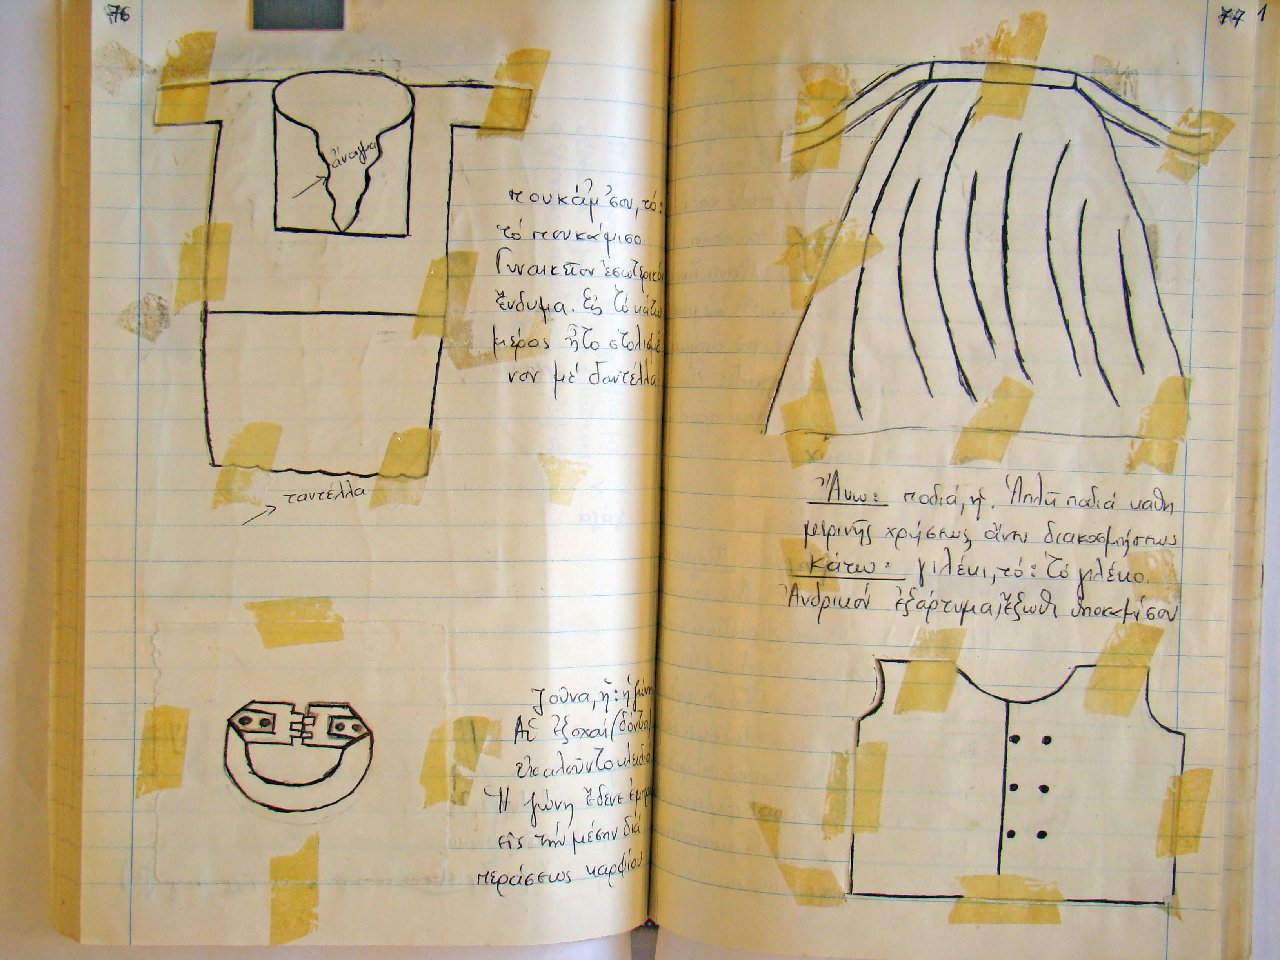 76
ἄναγμα
πουκάμ'σου, τό:
τό πουκάμισο.
Γυναικεῖον ἐσωτερικόν
ἔνδυμα. Εἰς τό κάτω
μέρος ἦτο στολισμέ
νον μέ δαντέλλα
ταντέλλα
ζοῦνα, ἡ: ἡ ζώνη
Αἱ ἐξοχαί (δόντια)
ἐκαλοῦντο κλειδιά
Ἡ ζώνη ἔδενε ἐμπρός
εἰς τήν μέσην διά
περάσεως καρφίου
77 1
Ἄνω: ποδιά, ἡ. Ἁπλῆ ποδιά καθη
μερινῆς χρήσεως ἄνευ διακοσμήσεως
Κάτω: γιλέκι, τό: τό γιλέκο.
Ἀνδρικόν ἐξάρτυμα, ἔξωθι ὑποκαμίσου